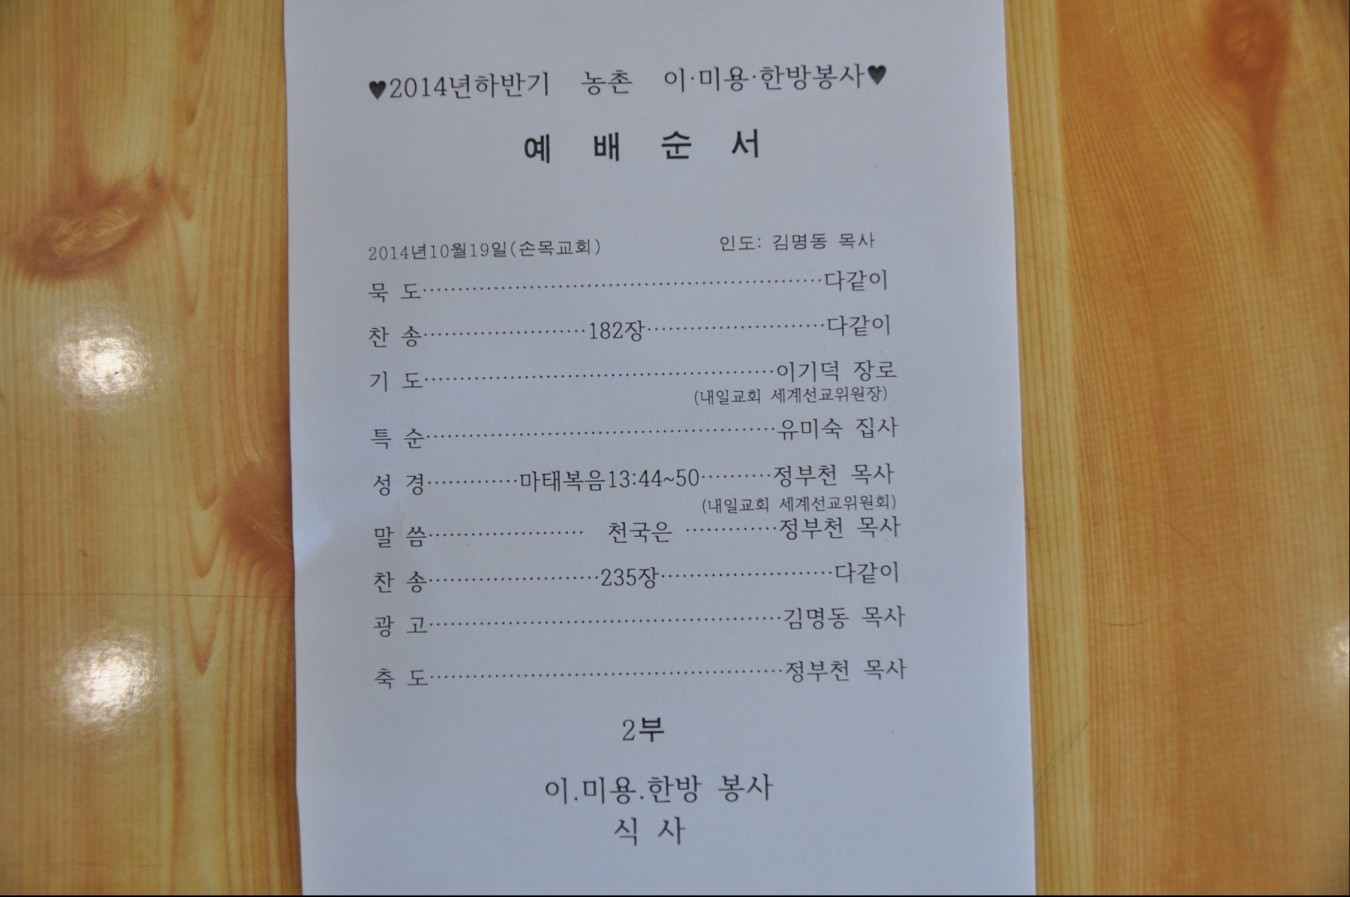 ♥2014년하반기 농촌 이·미용·한방봉사♥
예 배 순 서
2014년10월19일(손목교회) 인도: 김명동 목사
묵 도·······················································다같이
찬 송·······················182장·························다같이
기 도················································이기덕 장로
(내일교회 세계선교위원장)
특 순················································유미숙 집사
성 경·············마태복음13:44~50··········정부천 목사
(내일교회 세계선교위원회)
말 씀······················ 천국은 ·············정부천 목사
찬 송························235장························다같이
광 고·················································김명동 목사
축 도·················································정부천 목사
2부
이.미용.한방 봉사
식 사